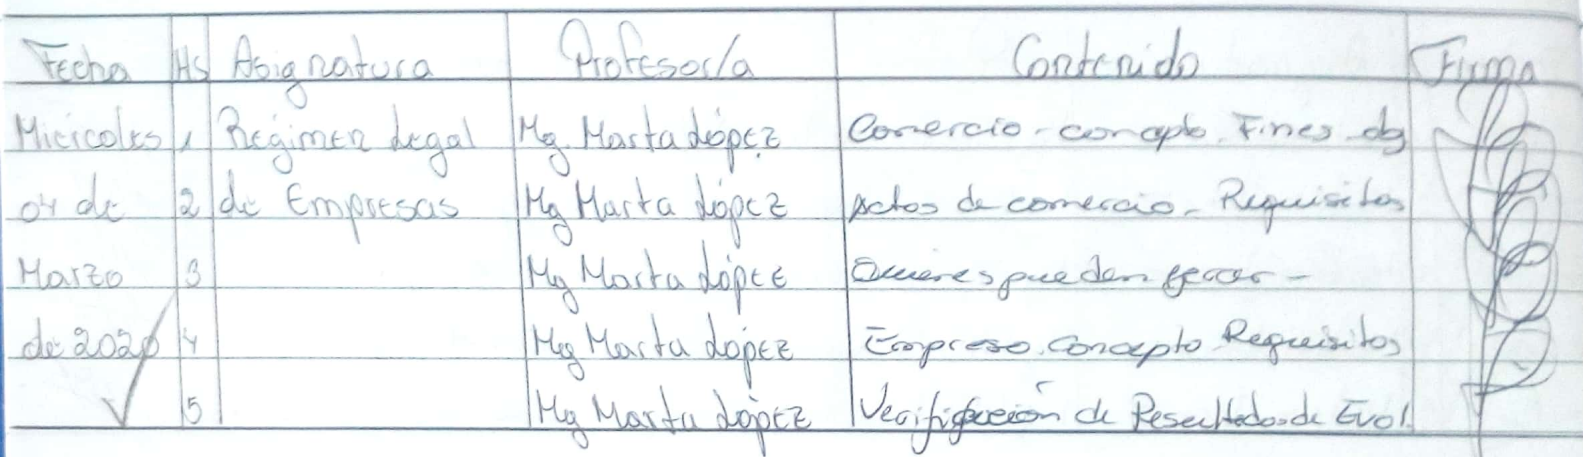 Fecha Hs Asignatura Profesor/a Contenido Firma
Miércoles 1 Régimen Legal Mg. Marta López Comercio - concepto. Fines de
04 de 2 de Empresas Mg Marta López Actos de comercio - Requisitos
Marzo 3 Mg Marta López Quienes pueden ejercer -
de 2020 4 Mg Marta López Empresa. Concepto Requisitos
5 Mg Marta López Verificación de Resultados de Eval.